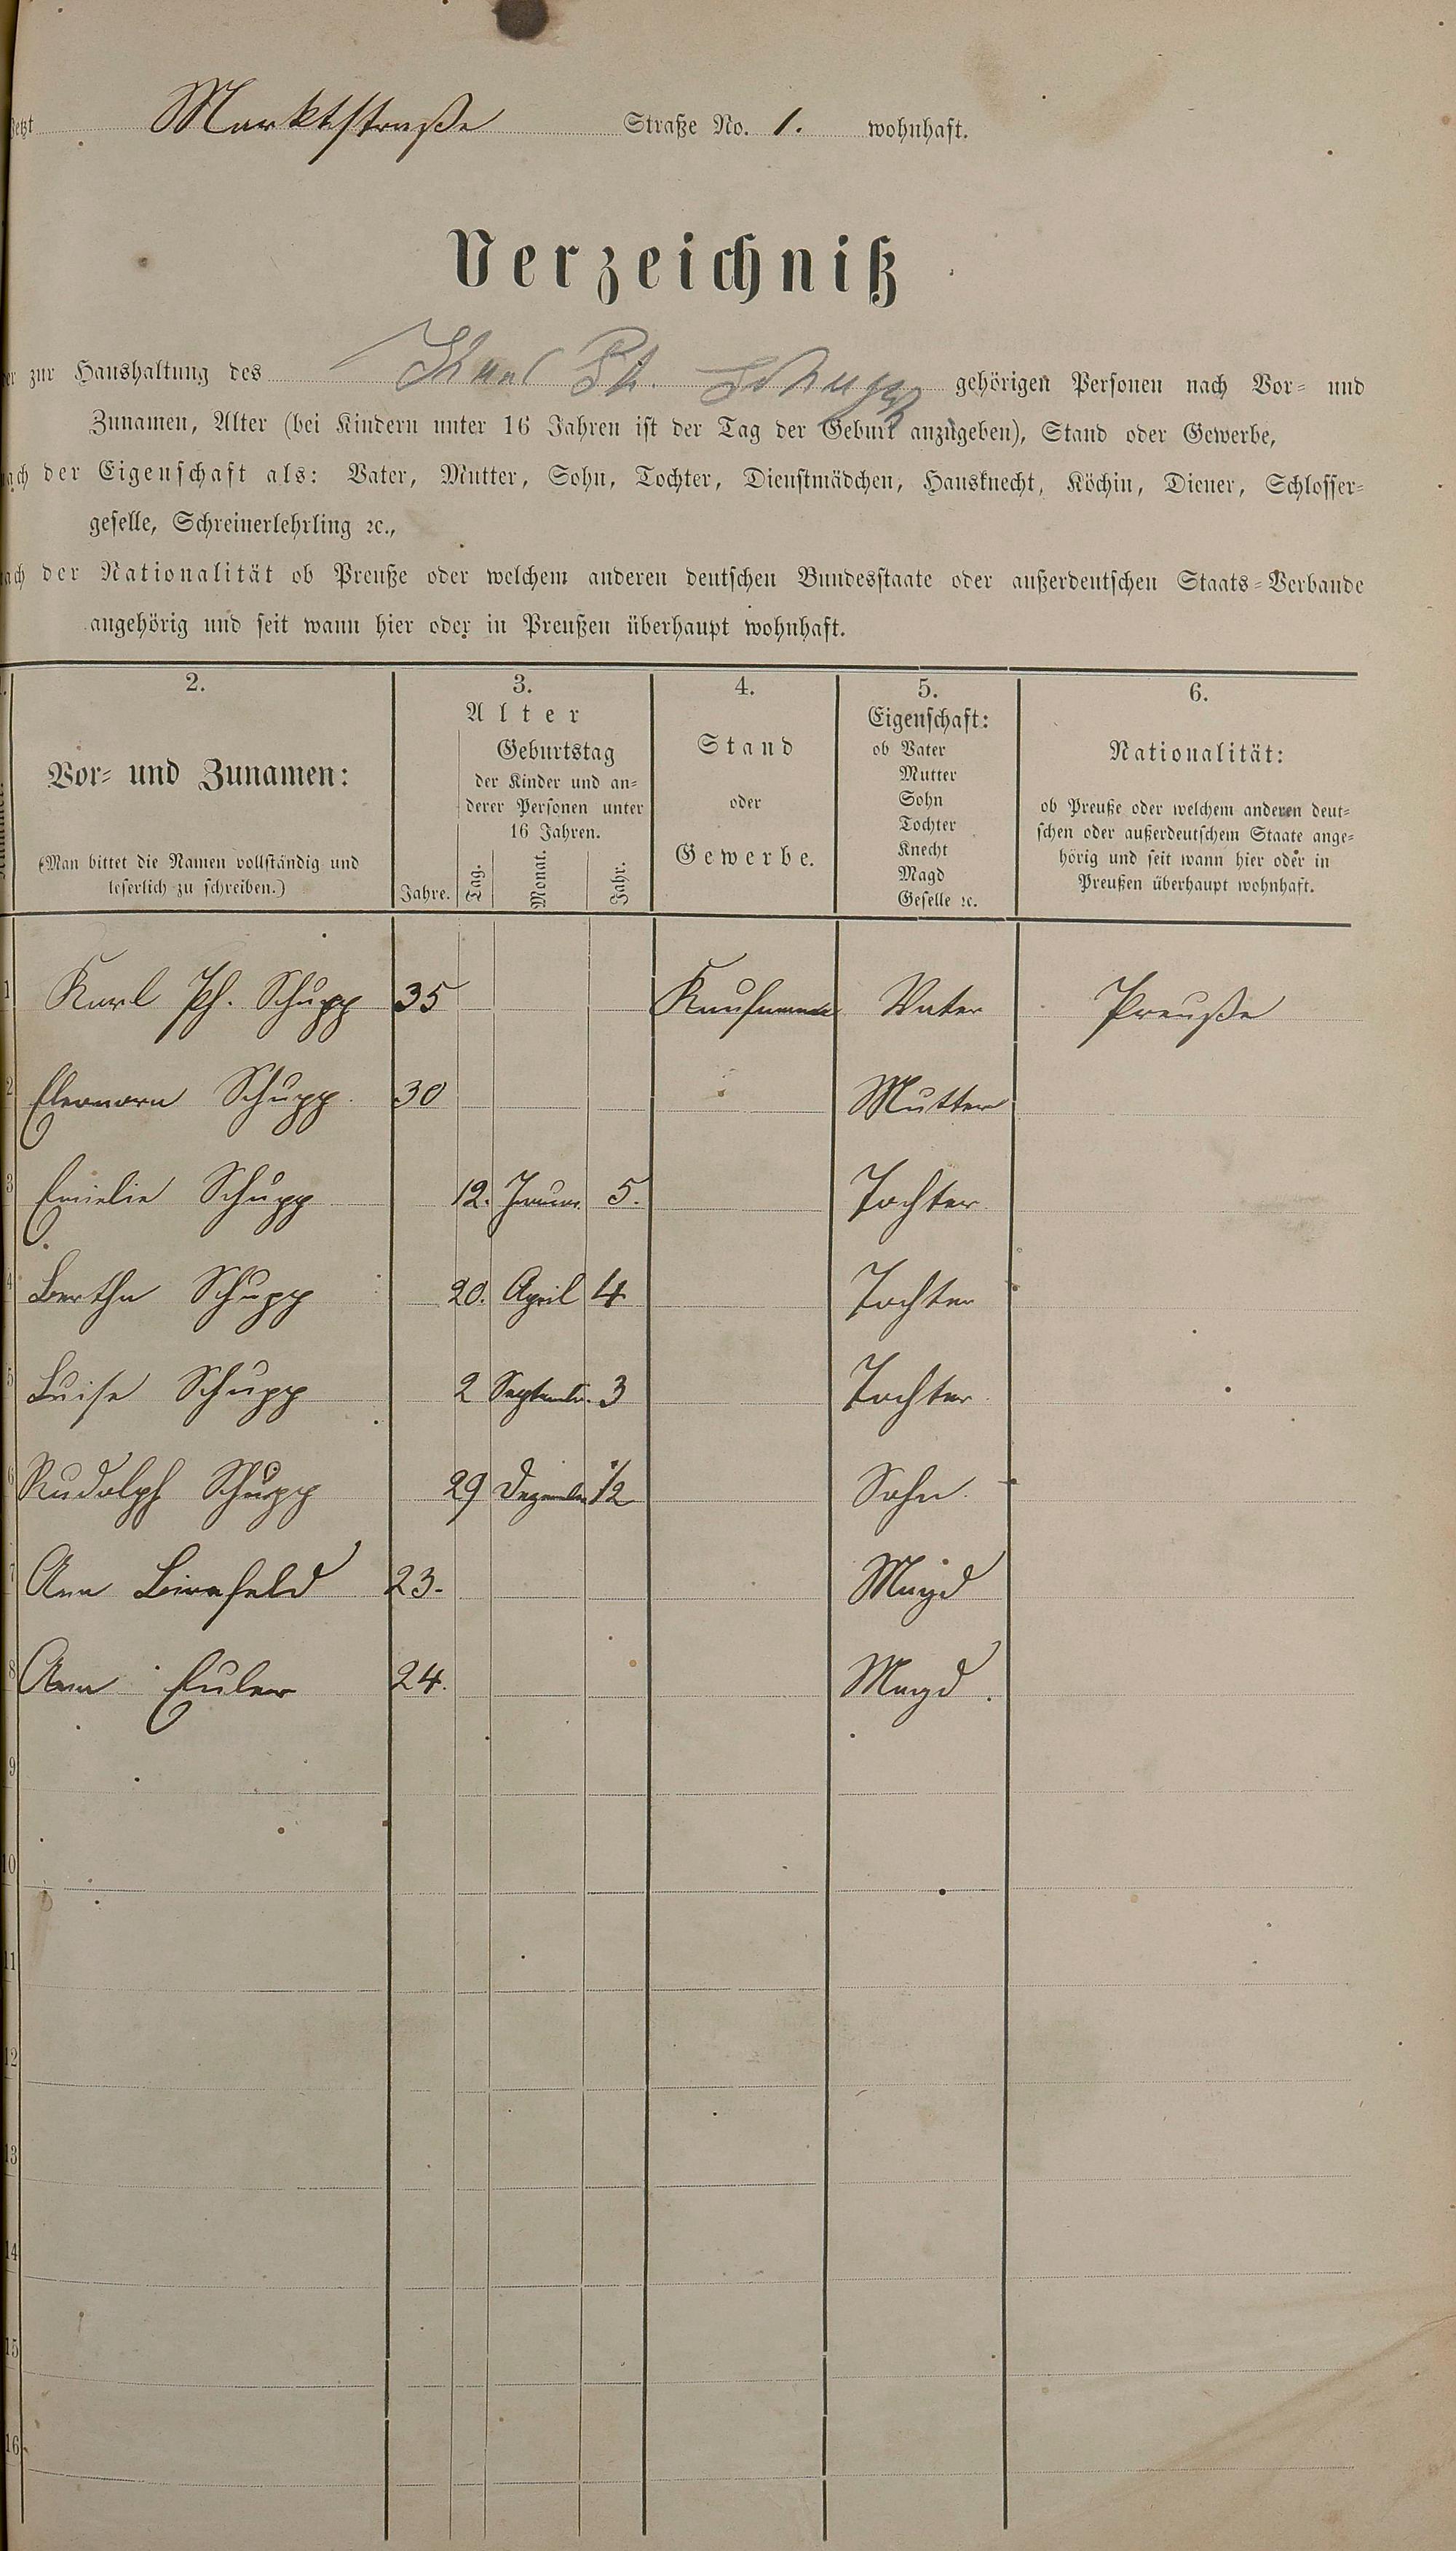 Jetzt Marktstraße Straße No. 1. wohnhaft.
Verzeichniß
der zur Haushaltung des Karl Ph. Schupp gehörigen Personen nach Vor- und
Zunamen, Alter (bei Kindern unter 16 Jahren ist der Tag der Geburt anzugeben), Stand oder Gewerbe,
nach der Eigenschaft als: Vater, Mutter, Sohn, Tochter, Dienstmädchen, Hausknecht, Köchin, Diener, Schlosser-
geselle, Schreinerlehrling ꝛc.,
nach der Nationalität ob Preuße oder welchem anderen deutschen Bundesstaate oder außerdeutschen Staats-Verbande
angehörig und seit wann hier oder in Preußen überhaupt wohnhaft.
2.
Vor- und Zunamen:
(Man bittet die Namen vollständig und
leserlich zu schreiben.)
3.
Alter
Geburtstag
der Kinder und an-
derer Personen unter
16 Jahren.
Jahre. Tag. Monat. Jahr.
4.
Stand
oder
Gewerbe.
5.
Eigenschaft:
ob Vater
Mutter
Sohn
Tochter
Knecht
Magd
Geselle ꝛc.
6.
Nationalität:
ob Preuße oder welchem anderen deut-
schen oder außerdeutschem Staate ange-
hörig und seit wann hier oder in
Preußen überhaupt wohnhaft.
1 Karl Ph. Schupp 35 Kaufmann Vater Preuße
2 Eleonora Schupp. 30 Mutter
3 Emielie Schupp 12. Januar 5. Tochter
4 Bertha Schupp 20. April 4 Tochter
5 Luise Schupp 2 Septemb. 3 Tochter
6 Rudolph Schupp 29 Dezember 1/2 Sohn.
7 Ann 23. Magd
8 Ann Euler 24. Magd.
9
10
11
12
13
14
15
16